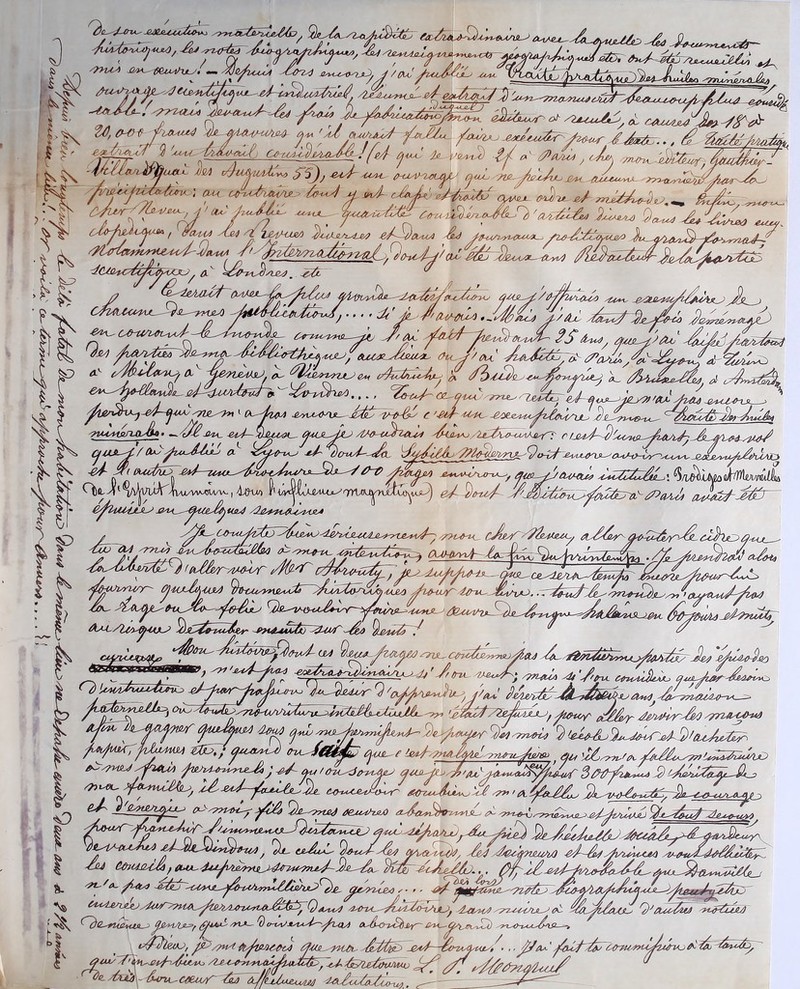 de son exécution matérielle, de la rapidité extraordinaire avec laquelle les documents
historiques, les notes biographiques, les renseignements géographiques etc. ont été recueillis et
mis en œuvre! — Depuis lors encore, j'ai publié un Traité pratique des huiles minérales,
ouvrage scientifique et industriel, résumé et extrait d'un manuscrit beaucoup plus considé-
rable! mais devant les frais de fabrication duquel mon éditeur a reculé, à causes des 18 à
20,000 francs de gravures qu'il aurait fallu faire exécuter pour le texte..., le Traité pratique
extrait d'un travail considérable! (et qui se vend 2f à Paris, chez mon éditeur, Gauthier-
Villars, quai des Augustins 55), est un ouvrage qui ne pèche en aucune manière par la
précipitation: au contraire tout y est classé et traité avec ordre et méthode. — Enfin, mon
cher Neveu, j'ai publié une quantité considérable d'articles divers dans les livres ency-
clopédiques, dans les revues diverses et dans les journaux politiques du grand format,
notamment dans l'International, dont j'ai été deux ans Rédacteur de la partie
scientifique, à Londres. etc
Ce serait avec la plus grande satisfaction que j'offrirais un exemplaire de
chacune de mes publications,.... si je l'avais. Mais j'ai tant de fois déménagé
en courant le monde comme je l'ai fait pendant 25 ans, que j'ai laissé partout
des parties de ma bibliothèque, aux lieux où j'ai habité, à Paris, à Lyon, à Turin
à Milan, à Genève, à Vienne en Autriche, à Bude en Hongrie, à Bruxelles, à Amsterdam
en hollande et surtout à Londres.... Tout ce qui me reste, et que je n'ai pas encore
perdu, et qui ne m'a pas encore été volé c'est un exemplaire de mon Traité des huiles
minérales. — Il en est deux que je voudrais bien retrouver: c'est d'une part, le gros vol
que j'ai publié à Lyon et dont la Sybille Moderne doit encore avoir un exemplaire,
et l'autre est une brochure de 100 pages environ, que j'avais intitulée: Prodiges et Merveilles
de l'Esprit humain, sous l'influence magnétique) et dont l'édition faite à Paris avait été
épuisée en quelques semaines
Je compte bien sérieusement, mon cher Neveu, aller goûter le cidre que
tu as mis en bouteilles à mon intention, avant la fin du printemps. Je prendrai alors
la liberté d'aller voir Mr Abrouty, je suppose que ce sera temps encore pour lui
fournir quelques documents historiques pour son livre... tout le monde n'ayant pas
la rage ou la folie de vouloir faire une œuvre de longue haleine en 60 jours et nuits,
au risque de tomber ensuite sur les dents!
Mon histoire, dont ces deux pages ne contiennent pas la centième partie des épisodes
curieux, n'est pas extraordinaire si l'on veut; mais si l'on considère que par besoin
d'instruction et par passion du désir d'apprendre, j'ai déserté à treize ans, la maison
paternelle, où toute nourriture intellectuelle m'était refusée, pour aller servir les maçons
afin de gagner quelques sous qui me permissent de payer des mois d'école du soir et d'acheter
papier, plumes etc.; quand on sait que c'est malgré mon père, qu'il m'a fallu m'instruire
à mes frais personnels; et qu'on songe que je n'ai jamais eu pour 300 francs d'héritage de
ma famille, il est facile de concevoir combien il m'a fallu de volonté, de courage
et d'énergie à moi, fils de mes œuvres abandonné à moi même et privé de tout secours,
pour franchir l'immense distance qui sépare, du pied de l'échelle sociale, le gardeur
de vaches et de dindons, de celui dont les grands, les seigneurs et les princes vont solliciter
les conseils, au suprême sommet de la dite échelle... Or, il est probable que Damville
n'a pas été une fourmillière de génies.... et dès lors une note biographique peut être
insérée sur ma personnalité, dans son histoire, sans nuire à la place d'autres notices
de même genre, qui ne doivent pas abonder en grand nombre.
Adieu, je m'aperçois que ma lettre est longue!... J'ai fait ta commission à ta tante,
qui t'en est bien reconnaissante, et te retourne
de très bon cœur tes affectueuses salutations.
L. P. Mongruel
Depuis bien longtemps le délai fatal de mon habitation dans le même lieu ne dépasse guère deux ans à 2 ½ années
dans le même lieu... or voilà ce terme qui approche pour Anvers....!